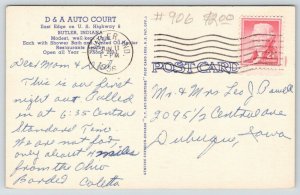 D & A AUTO COURT
East Edge on U. S. Highway 6
BUTLER, INDIANA
Modern, well-kept Court
Each with Shower Bath and
Restaurants
Open all Year
# 906 $200
POST CARD
Dear Mom & Dad,
This is our first
night out. Pulled
in at 6:35 Central
Standard Time
We are not far
only about 4 miles
from the Ohio
Border Coletta
Mr & Mrs Leo J Powell
2095 1/2 Central ave
Dubuque, Iowa